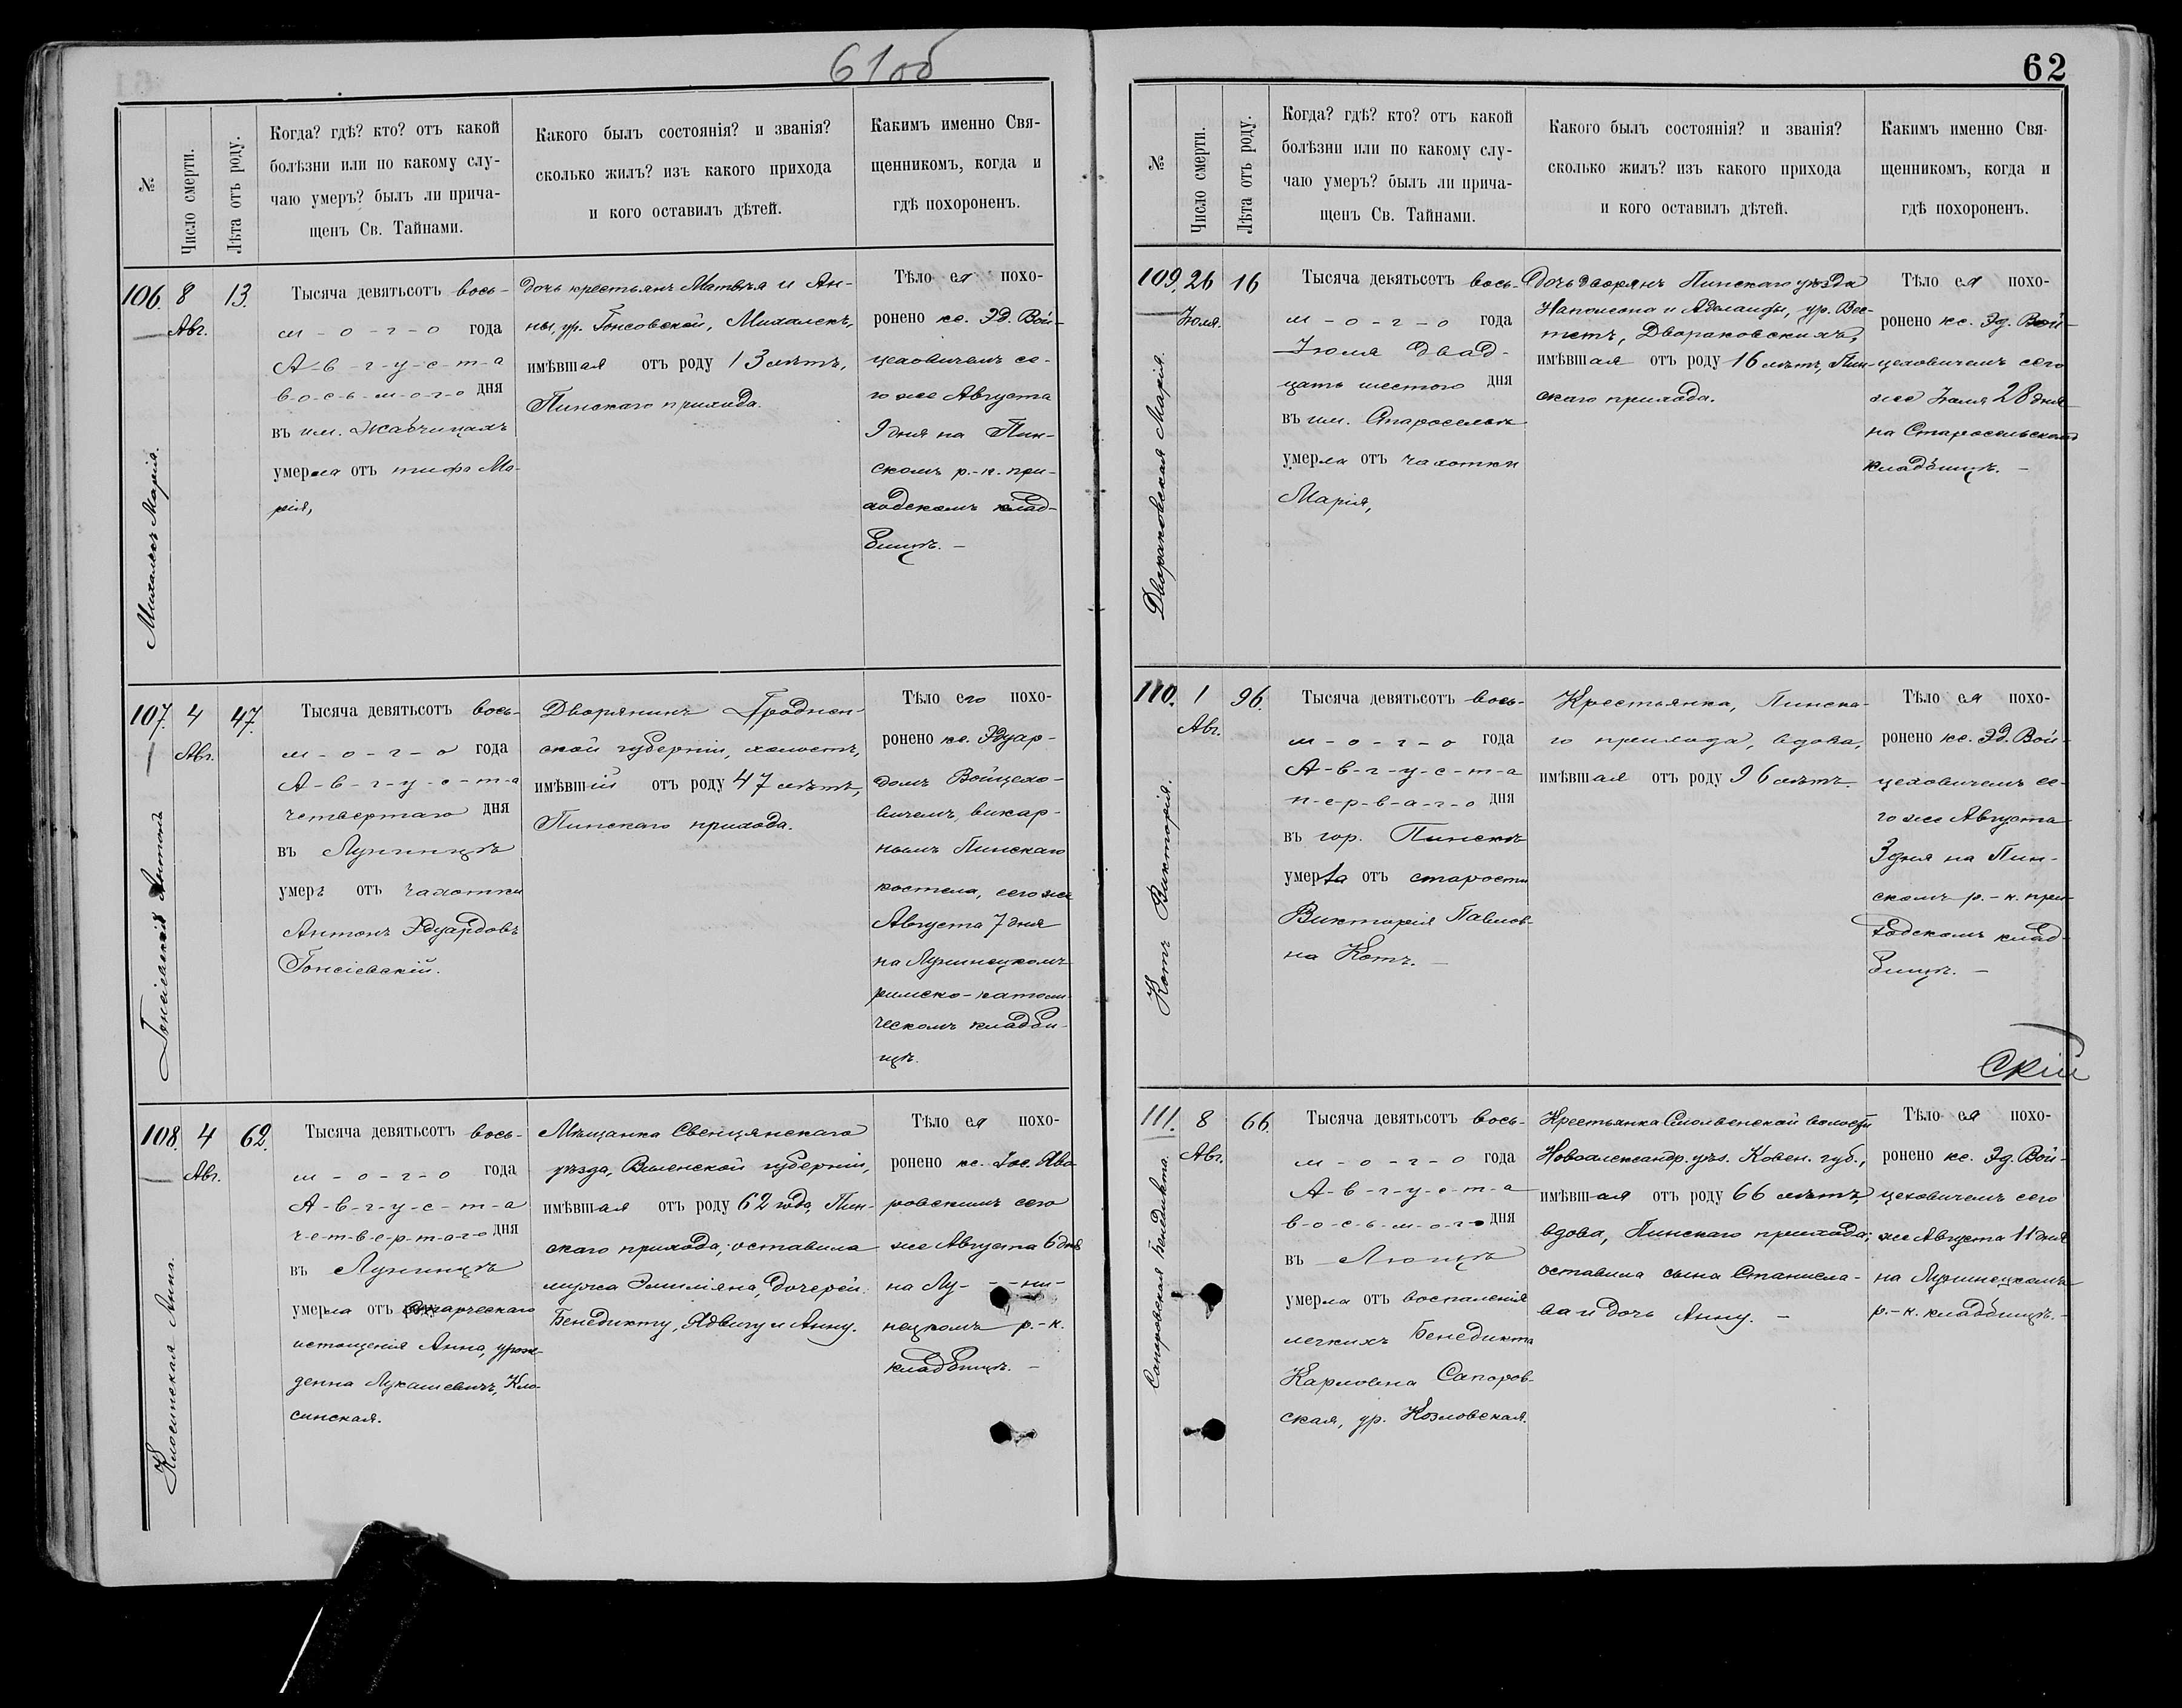 61об
№
Число смерти.
Лѣта отъ роду.
Когда? гдѣ? кто? отъ какой
болѣзни или по какому слу-
чаю умеръ? былъ ли прича-
щенъ Св. Тайнами.
Какого былъ состоянія? и званія?
сколько жилъ? изъ какого прихода
и кого оставилъ дѣтей.
Какимъ именно Свя-
щенникомъ, когда и
гдѣ похороненъ.
106.
Михалекъ Марія.
8
Авг.
13.
Тысяча девятьсотъ вось-
м-о-г-о года
А-в-г-у-с-т-а
в-о-с-ь-м-о-г-о дня
въ им. Жабчицахъ
умерла отъ тифа Ма-
рія,
дочь крестьянъ Матвѣя и Ан-
ны, ур. Гонсовской, Михалекъ,
имѣвшая отъ роду 13 лѣтъ,
Пинскаго прихода.
Тѣло ея похо-
ронено кс. Эд. Вой-
цеховичемъ се-
го же Августа
9 дня на Пин-
скомъ р.-к. при-
ходскомъ клад-
бищѣ. –
107.
Гонсіевскій Антонъ
4
Авг.
47.
Тысяча девятьсотъ вось-
м-о-г-о года
А-в-г-у-с-т-а
четвертаго дня
въ Лунинцѣ
умеръ отъ чахотки
Антонъ Эдуардовъ
Гонсіевскій.
Дворянинъ Гроднен-
ской губерніи, холостъ,
имѣвшій отъ роду 47 лѣтъ,
Пинскаго прихода.
Тѣло его похо-
ронено кс. Эдуар-
домъ Войцехо-
вичемъ, викар-
нымъ Пинскаго
костела, сего же
Августа 7 дня
на Лунинецкомъ
римско-католи-
ческомъ кладби-
щѣ.
108.
Клосинская Анна.
4
Авг.
62.
Тысяча девятьсотъ вось-
м-о-г-о года
А-в-г-у-с-т-а
ч-е-т-в-е-р-т-а-г-о дня
въ Лунинцѣ
умерла отъ старческаго
истощенія Анна, урож-
денна Лукашевичъ, Кло-
синская.
Мѣщанка Свенцянскаго
уѣзда, Виленской губерніи,
имѣвшая отъ роду 62 года, Пин-
скаго прихода; оставила
мужа Эмиліяна, дочерей:
Бенедикту, Ядвигу и Анну.
Тѣло ея похо-
ронено кс. Іос. Яво-
ровскимъ сего
же Августа 6 дня
на Лу- - - ни-
нецкомъ р.-к.
кладбищѣ. –
62
№
Число смерти.
Лѣта отъ роду.
Когда? гдѣ? кто? отъ какой
болѣзни или по какому слу-
чаю умеръ? былъ ли прича-
щенъ Св. Тайнами.
Какого былъ состоянія? и званія?
сколько жилъ? изъ какого прихода
и кого оставилъ дѣтей.
Какимъ именно Свя-
щенникомъ, когда и
гдѣ похороненъ.
109.
Двораковская Марія.
26
Іюля.
16
Тысяча девятьсотъ вось-
м-о-г-о года
Іюля двад-
цать шестого дня
въ им. Староселье
умерла отъ чахотки
Марія,
дочь дворянъ Пинскаго уѣзда
Наполеона и Аделаиды, ур.
Двораковскихъ,
имѣвшая отъ роду 16 лѣтъ, Пин-
скаго прихода.
Тѣло ея похо-
ронено кс. Эд. Вой-
цеховичемъ сего
же Іюля 28 дня
на Старосельскомъ
кладбищѣ. –
110.
Котъ Викторія.
1
Авг.
96.
Тысяча девятьсотъ вось-
м-о-г-о года
А-в-г-у-с-т-а
п-е-р-в-а-г-о дня
въ гор. Пинскѣ
умерла отъ старости
Викторія Павлов-
на Котъ. –
Крестьянка, Пинска-
го прихода, вдова,
имѣвшая отъ роду 96 лѣтъ.
Тѣло ея похо-
ронено кс. Эд. Вой-
цеховичемъ се-
го же Августа
3 дня на Пин-
скомъ р.-к. при-
ходскомъ клад-
бищѣ. –
скій
111.
Сапоровская Бенедикта.
8
Авг.
66.
Тысяча девятьсотъ вось-
м-о-г-о года
А-в-г-у-с-т-а
в-о-с-ь-м-о-г-о дня
въ
умерла отъ воспаленія
легкихъ Бенедикта
Карловна Сапоров-
ская, ур. Козловская.
Крестьянка Смолвенской волости
Новоалександр. уѣз. Ковен. губ.,
имѣвшая отъ роду 66 лѣтъ,
вдова, Пинскаго прихода;
оставила сына Станисла-
ва и дочь Анну. –
Тѣло ея похо-
ронено кс. Эд. Вой-
цеховичемъ сего
же Августа 11 дня
на Лунинецкомъ
р.-к. кладбищѣ. –